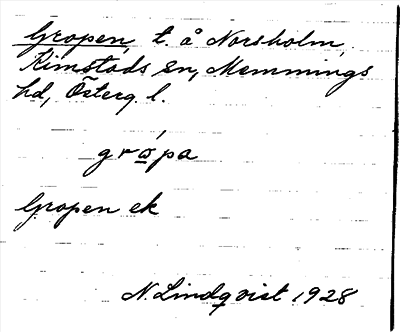 Gropen, t. å Norsholm,
Kimstads sn, Memmings
hd, Österg. l.
grọ́pa
Gropen ek
N. Lindqvist 1928